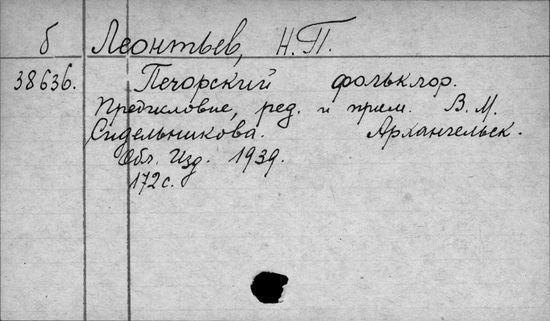 б Леонтьев, Н.П.
38636. Печорский фольклор.
Предисловие, ред. и прим. В.М.
Сидельникова. Архангельск.
Обл. Изд. 1939.
172 с.